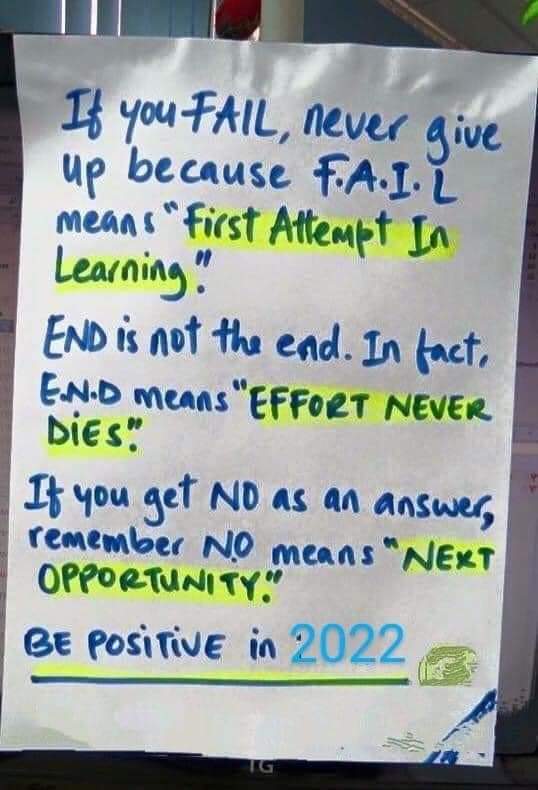 If you FAIL, never give
up because F.A.I.L
means "First Attempt In
Learning."
END is not the end. In fact,
E.N.D means "EFFORT NEVER
DIES."
If you get NO as an answer,
remember N.O means "NEXT
OPPORTUNITY."
BE POSITIVE in 2022